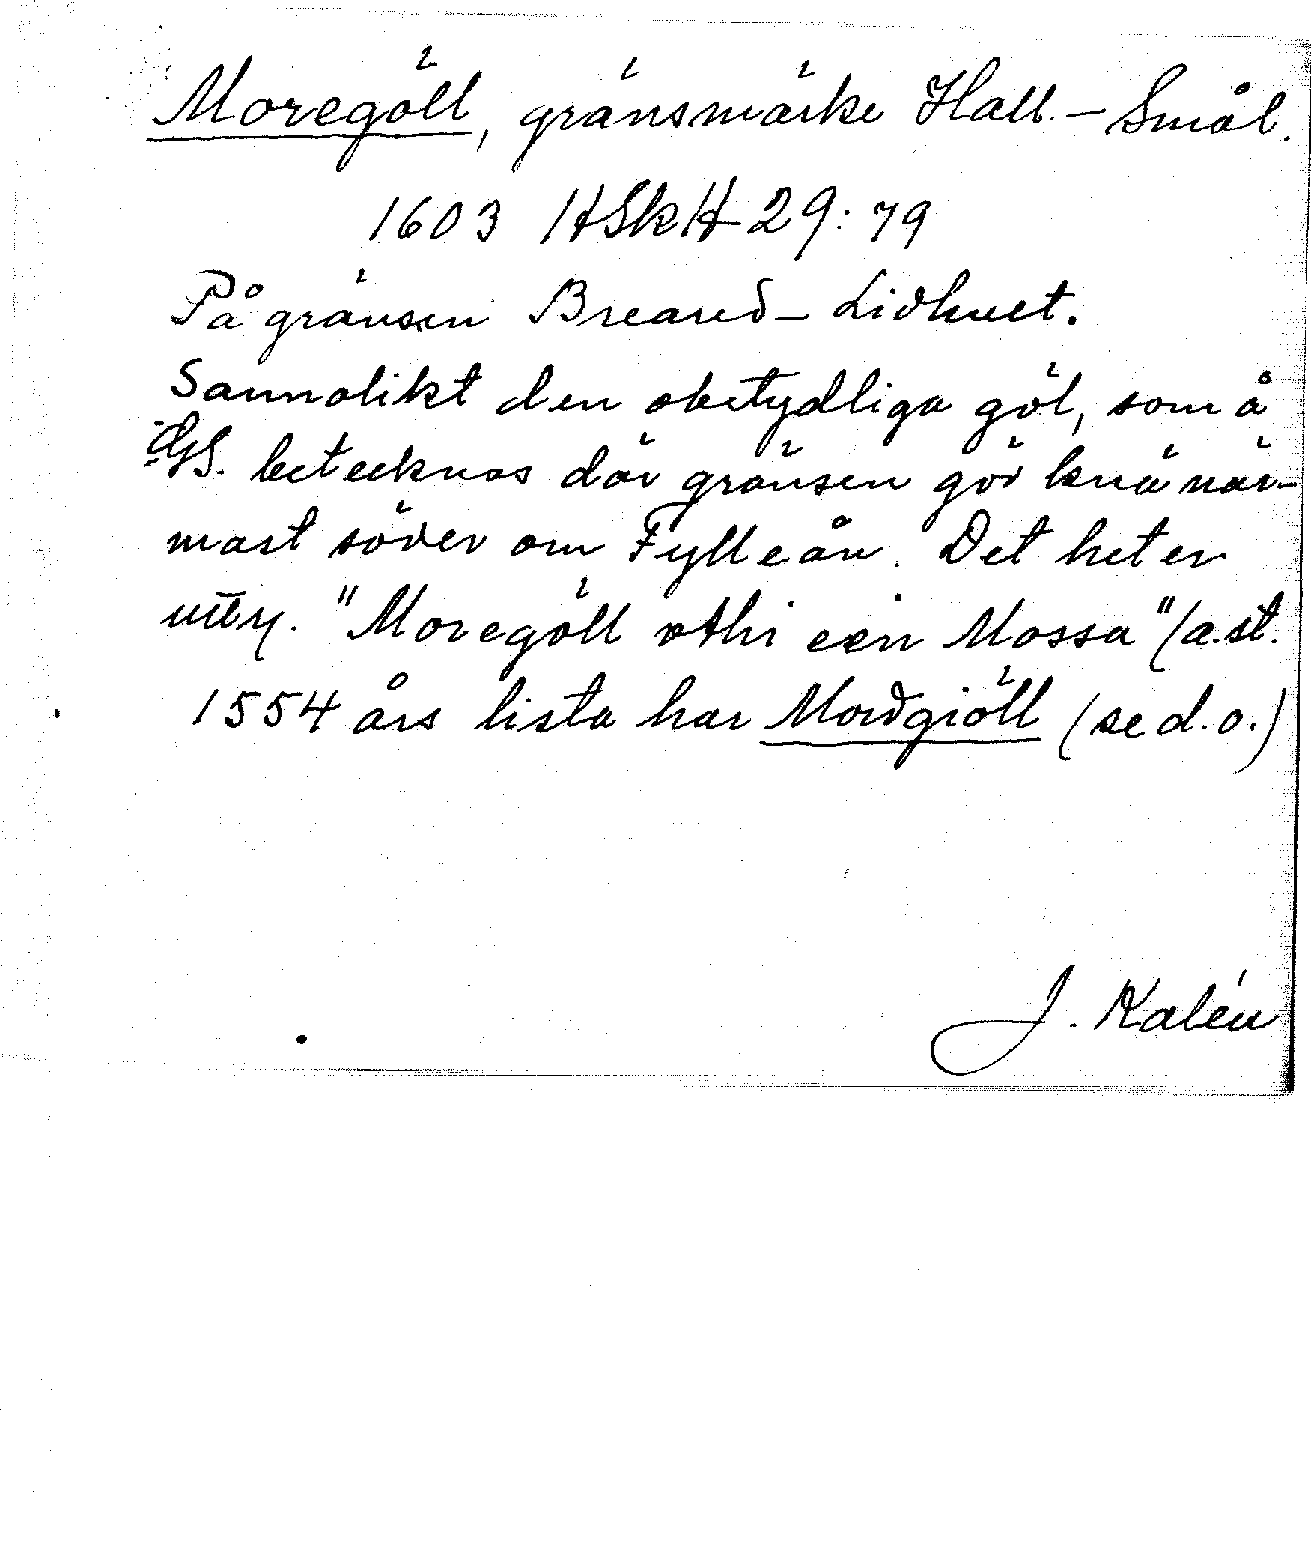 Moregöll, gränsmärke Hall. – Smål.
1603 HSkH 29:79
På gränsen Breared – Lidhult.
Sannolikt den obetydliga göl, som å
GS. betecknas där gränsen gör knä när-
mast söder om Fylleån. Det heter
näml. "Moregöll vthi een Mossa" (a.st.
1554 års lista har Mordgiöll (se d.o.)
J. Kalén